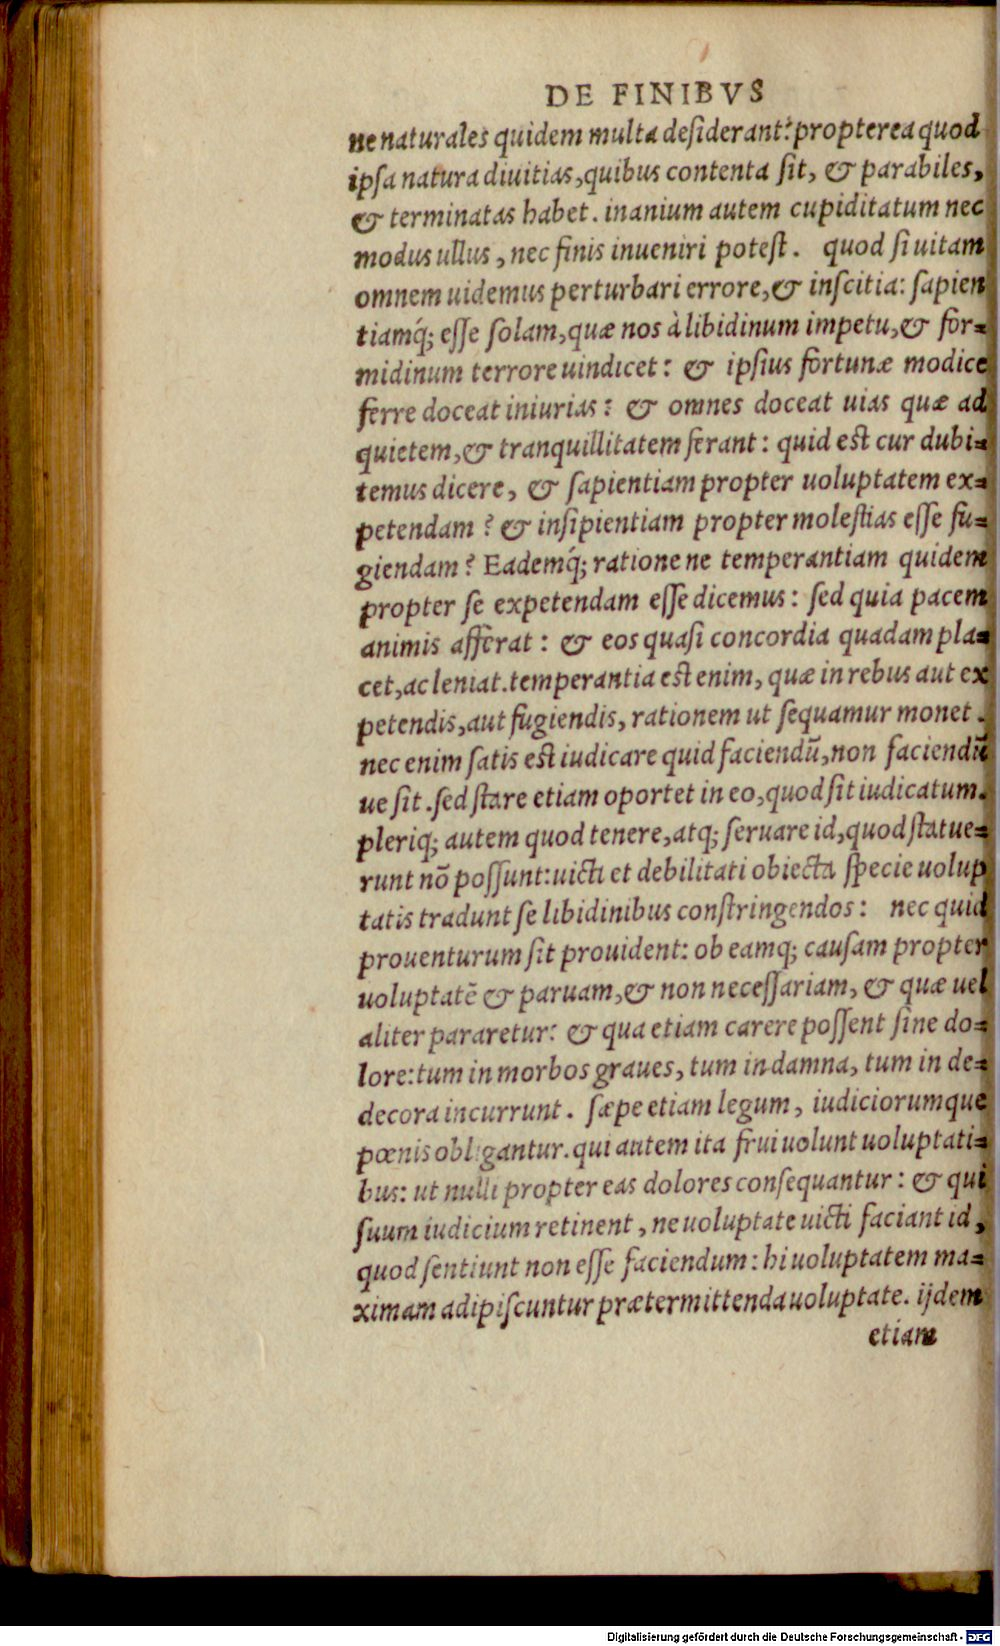 DE FINIBVS
ne naturales quidem multa desiderant? propterea quod
ipsa natura diuitias, quibus contenta sit, & parabiles,
& terminatas habet. inanium autem cupiditatum nec
modus ullus, nec finis inueniri potest. quod si uitam
omnem uidemus perturbari errore, & inscitia: sapien
tiamq́; esse solam, quæ nos à libidinum impetu, & for-
midinum terrore uindicet: & ipsius fortunæ modice
ferre doceat iniurias: & omnes doceat uias quæ ad
quietem, & tranquillitatem ferant: quid est cur dubi-
temus dicere, & sapientiam propter uoluptatem ex-
petendam? & insipientiam propter molestias esse fu-
giendam? Eademq́; ratione ne temperantiam quidem
propter se expetendam esse dicemus: sed quia pacem
animis afferat: & eos quasi concordia quadam pla-
cet, ac leniat. temperantia est enim, quæ in rebus aut ex
petendis, aut fugiendis, rationem ut sequamur monet.
nec enim satis est iudicare quid faciendũ, non faciendũ
ue sit. sed stare etiam oportet in eo, quod sit iudicatum.
pleriq; autem quod tenere, atq; seruare id, quod statue-
runt nõ possunt: uicti et debilitati obiecta specie uolup
tatis tradunt se libidinibus constringendos: nec quid
prouenturum sit prouident: ob eamq; causam propter
uoluptatẽ & paruam, & non necessariam, & quæ uel
aliter pararetur: & qua etiam carere possent sine do-
lore: tum in morbos graues, tum in damna, tum in de-
decora incurrunt. sæpe etiam legum, iudiciorumque
pœnis obligantur. qui autem ita frui uolunt uoluptati-
bus: ut nulli propter eas dolores consequantur: & qui
suum iudicium retinent, ne uoluptate uicti faciant id,
quod sentiunt non esse faciendum: hi uoluptatem ma-
ximam adipiscuntur prætermittenda uoluptate. ijdem
etiam
Digitalisierung gefördert durch die Deutsche Forschungsgemeinschaft - DFG